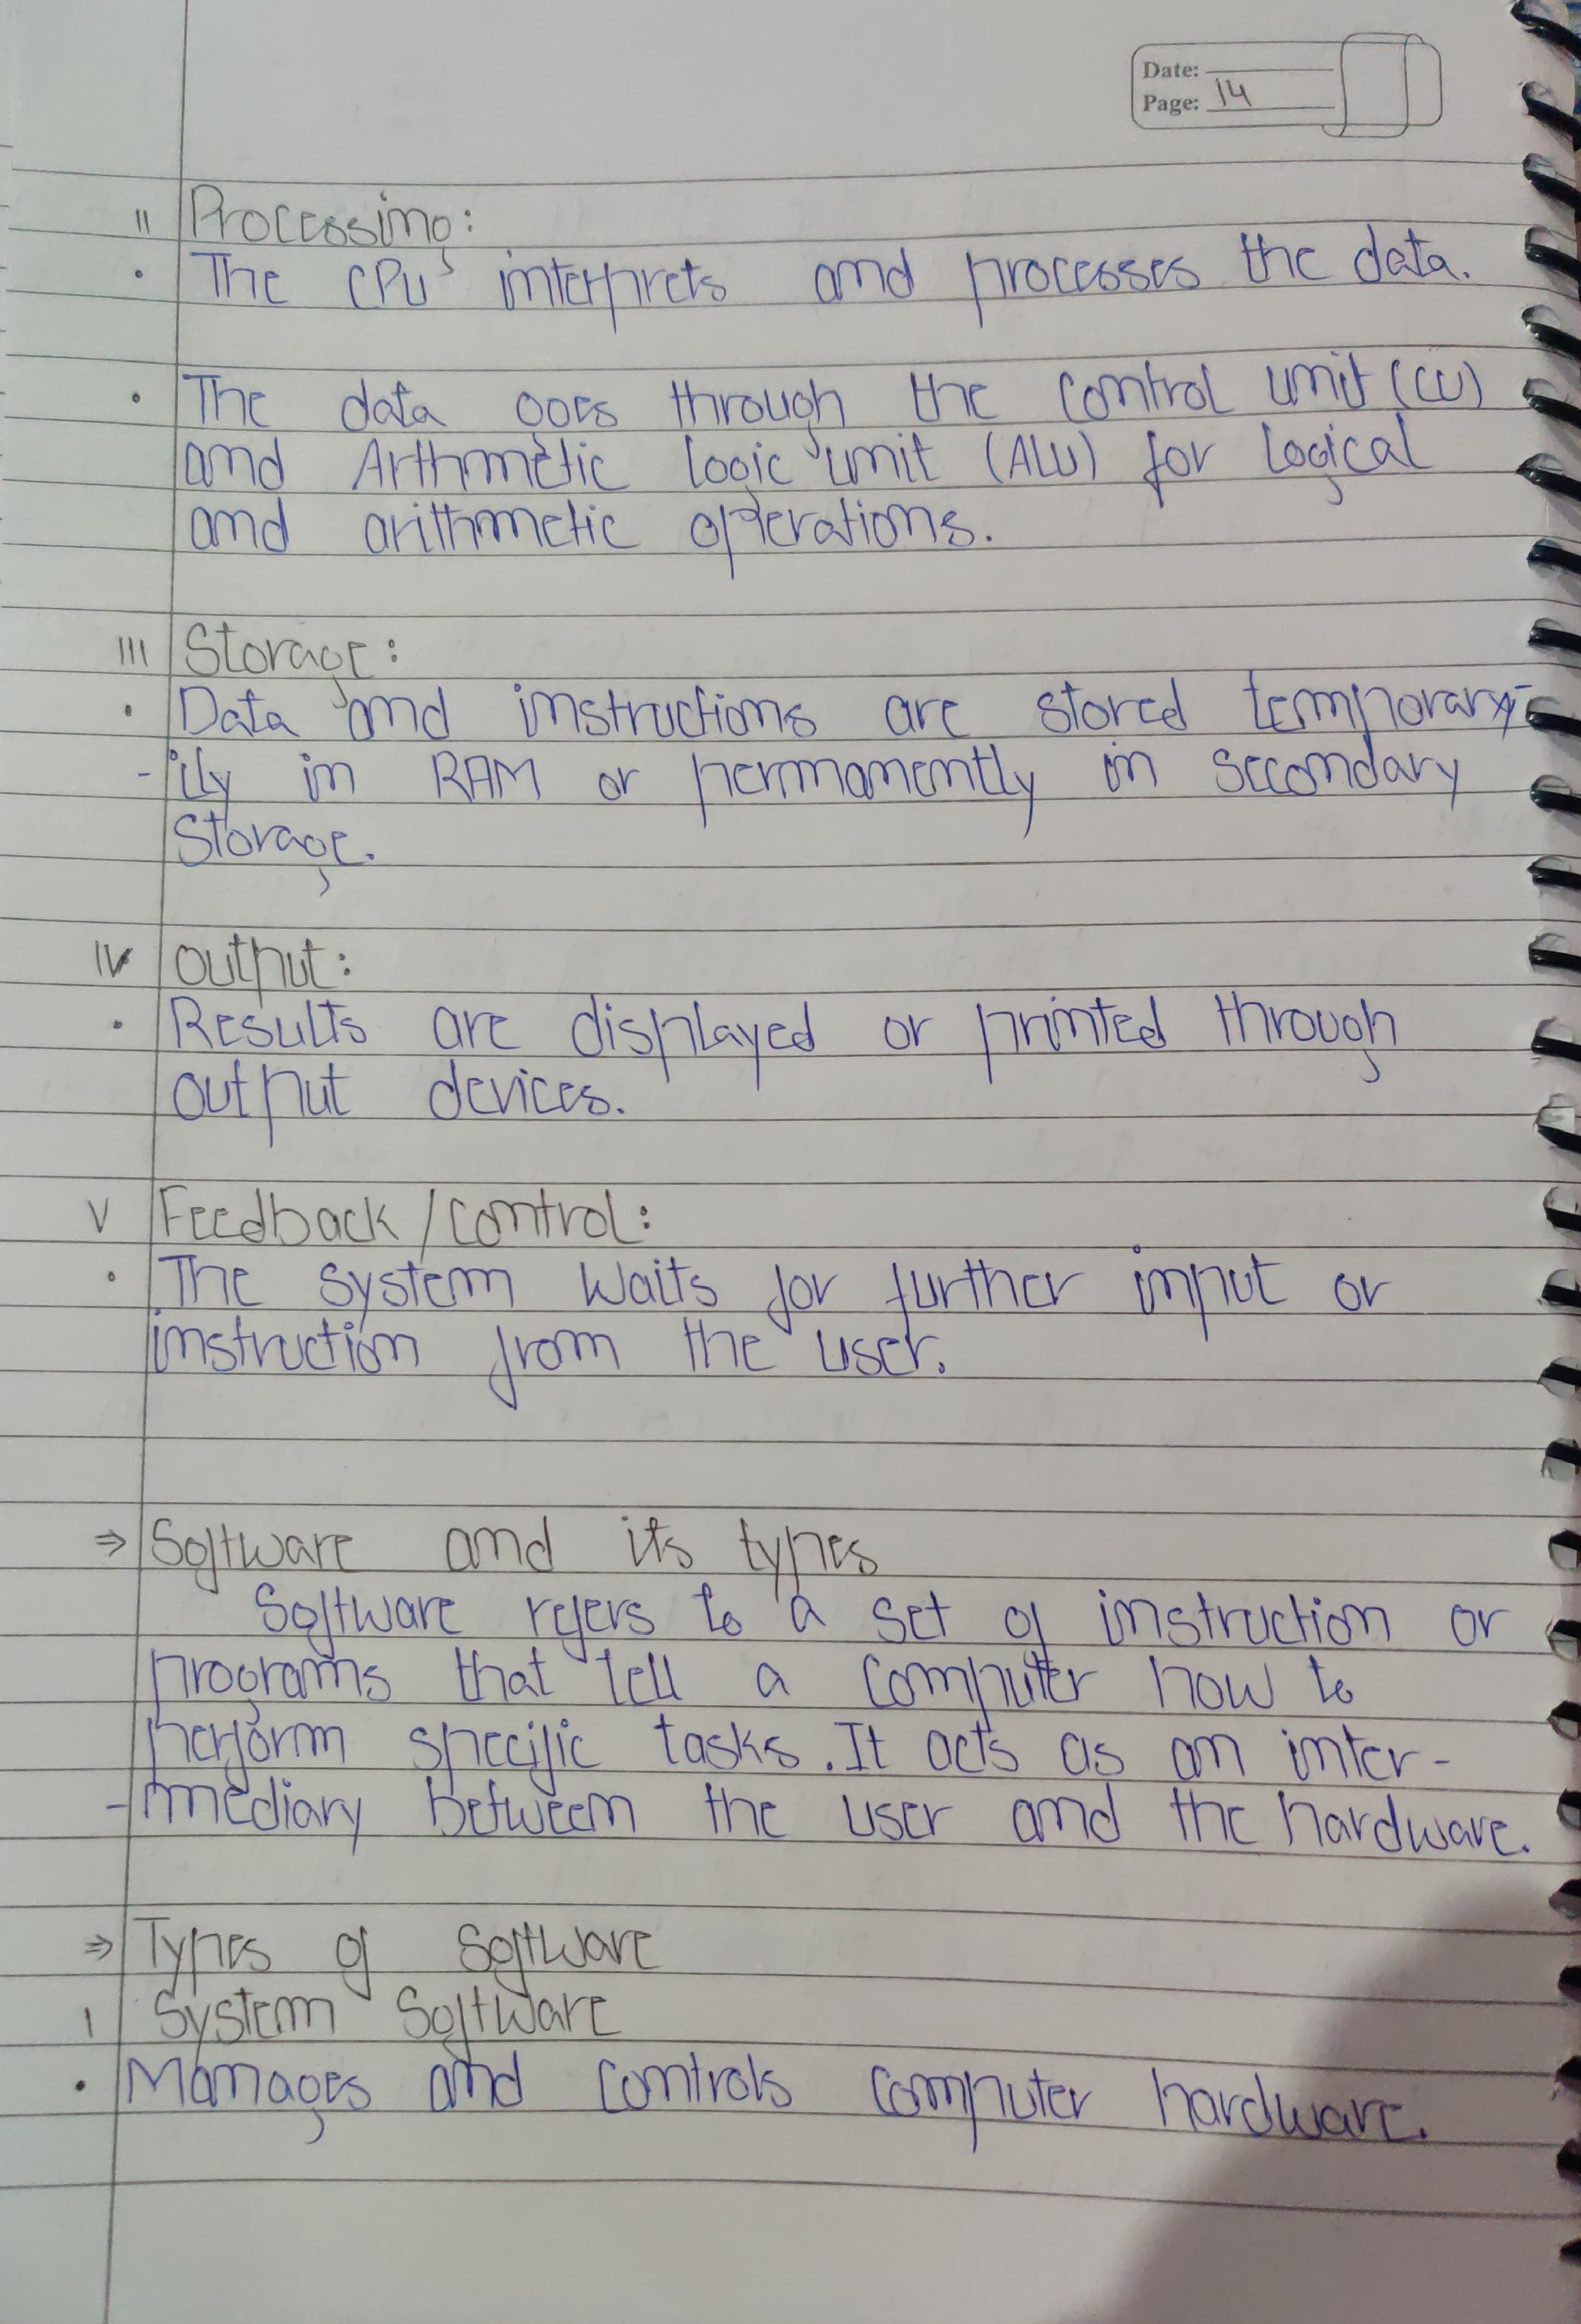 Date:
Page: 14
II Processing:
• The CPU interprets and processes the data.
• The data goes through the control unit (CU)
and Arthmetic logic unit (ALU) for logical
and arithmetic operations.
III Storage:
• Data and instructions are stored temporary-
-ily in RAM or permanently in secondary
storage.
IV output:
• Results are displayed or printed through
output devices.
V Feedback / control:
• The system waits for further input or
instruction from the user.
⇒ Software and its types
Software refers to a set of instruction or
programs that tell a computer how to
perform specific tasks. It acts as an inter-
-mediary between the user and the hardware.
⇒ Types of Software
I System Software
• Manages and controls computer hardware.